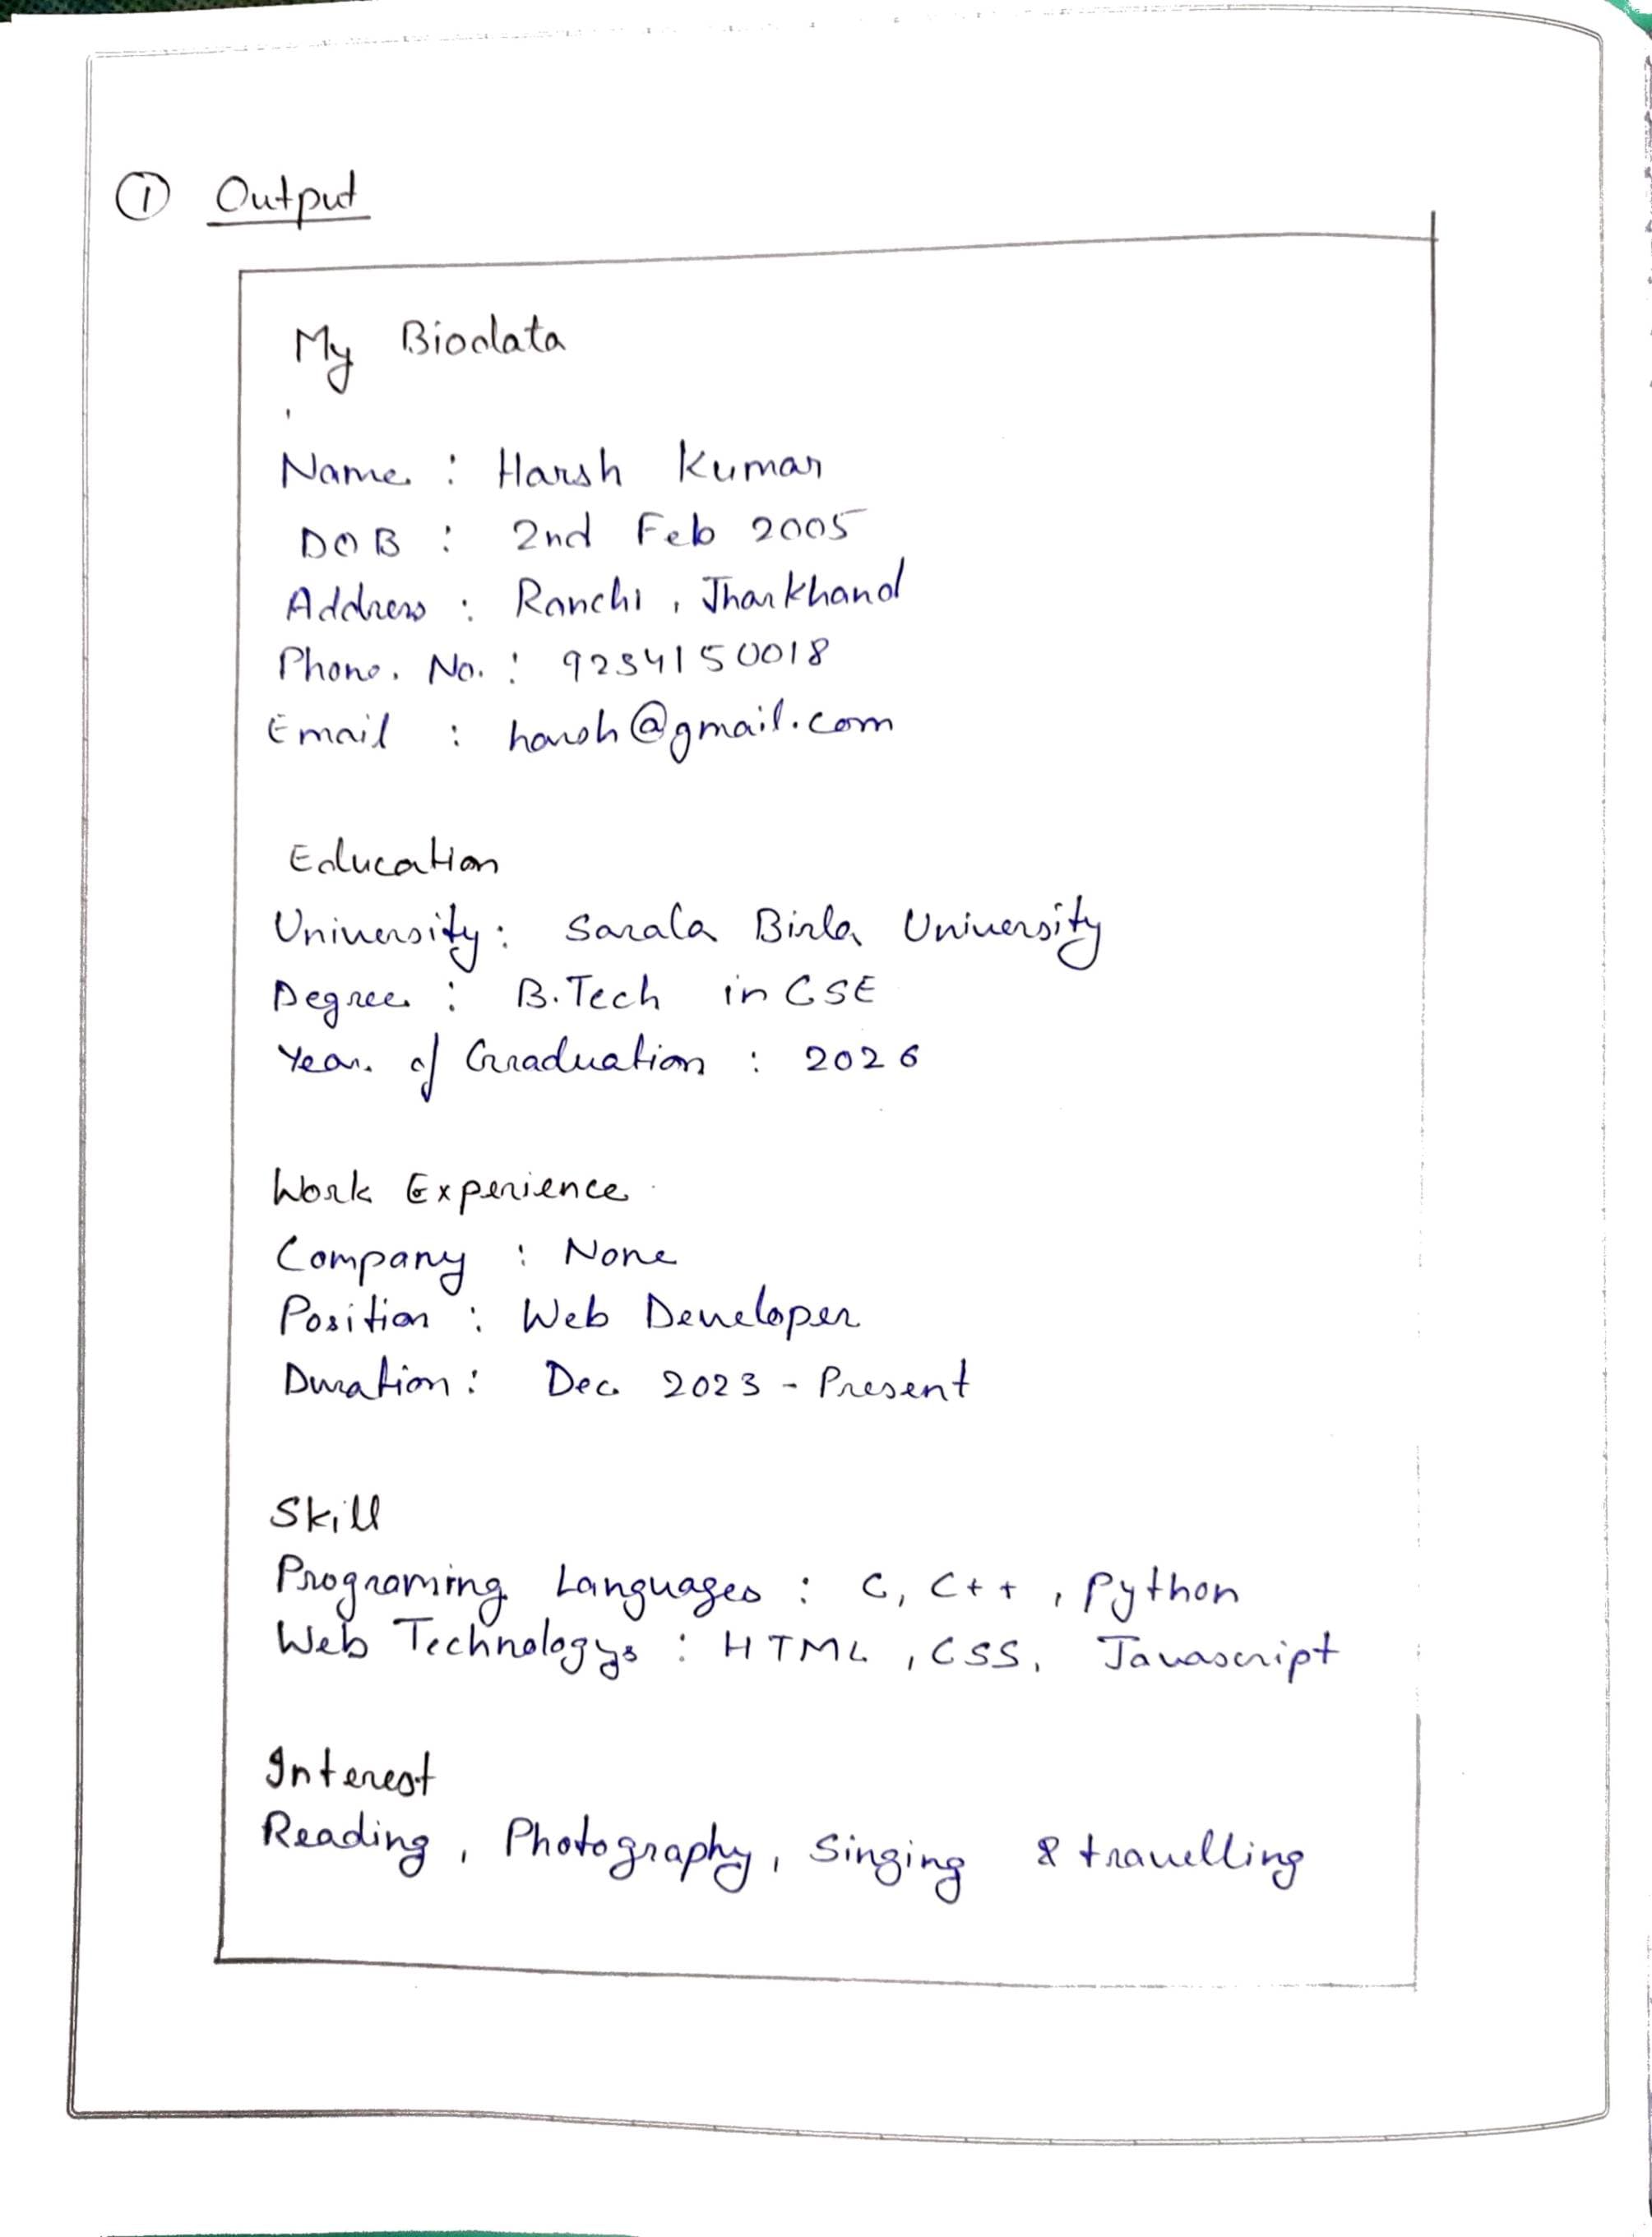 ① Output
My Biodata
Name : Harsh Kumar
DOB : 2nd Feb 2005
Address : Ranchi, Jharkhand
Phone. No. : 9234150018
Email : harsh@gmail.com
Education
University : Sarala Birla University
Degree : B.Tech in CSE
Year of Graduation : 2026
Work Experience
Company : None
Position : Web Developer
Duration : Dec. 2023 - Present
Skill
Programing Languages : C, C++, Python
Web Technologys : HTML, CSS, Javascript
Interest
Reading, Photography, Singing & travelling